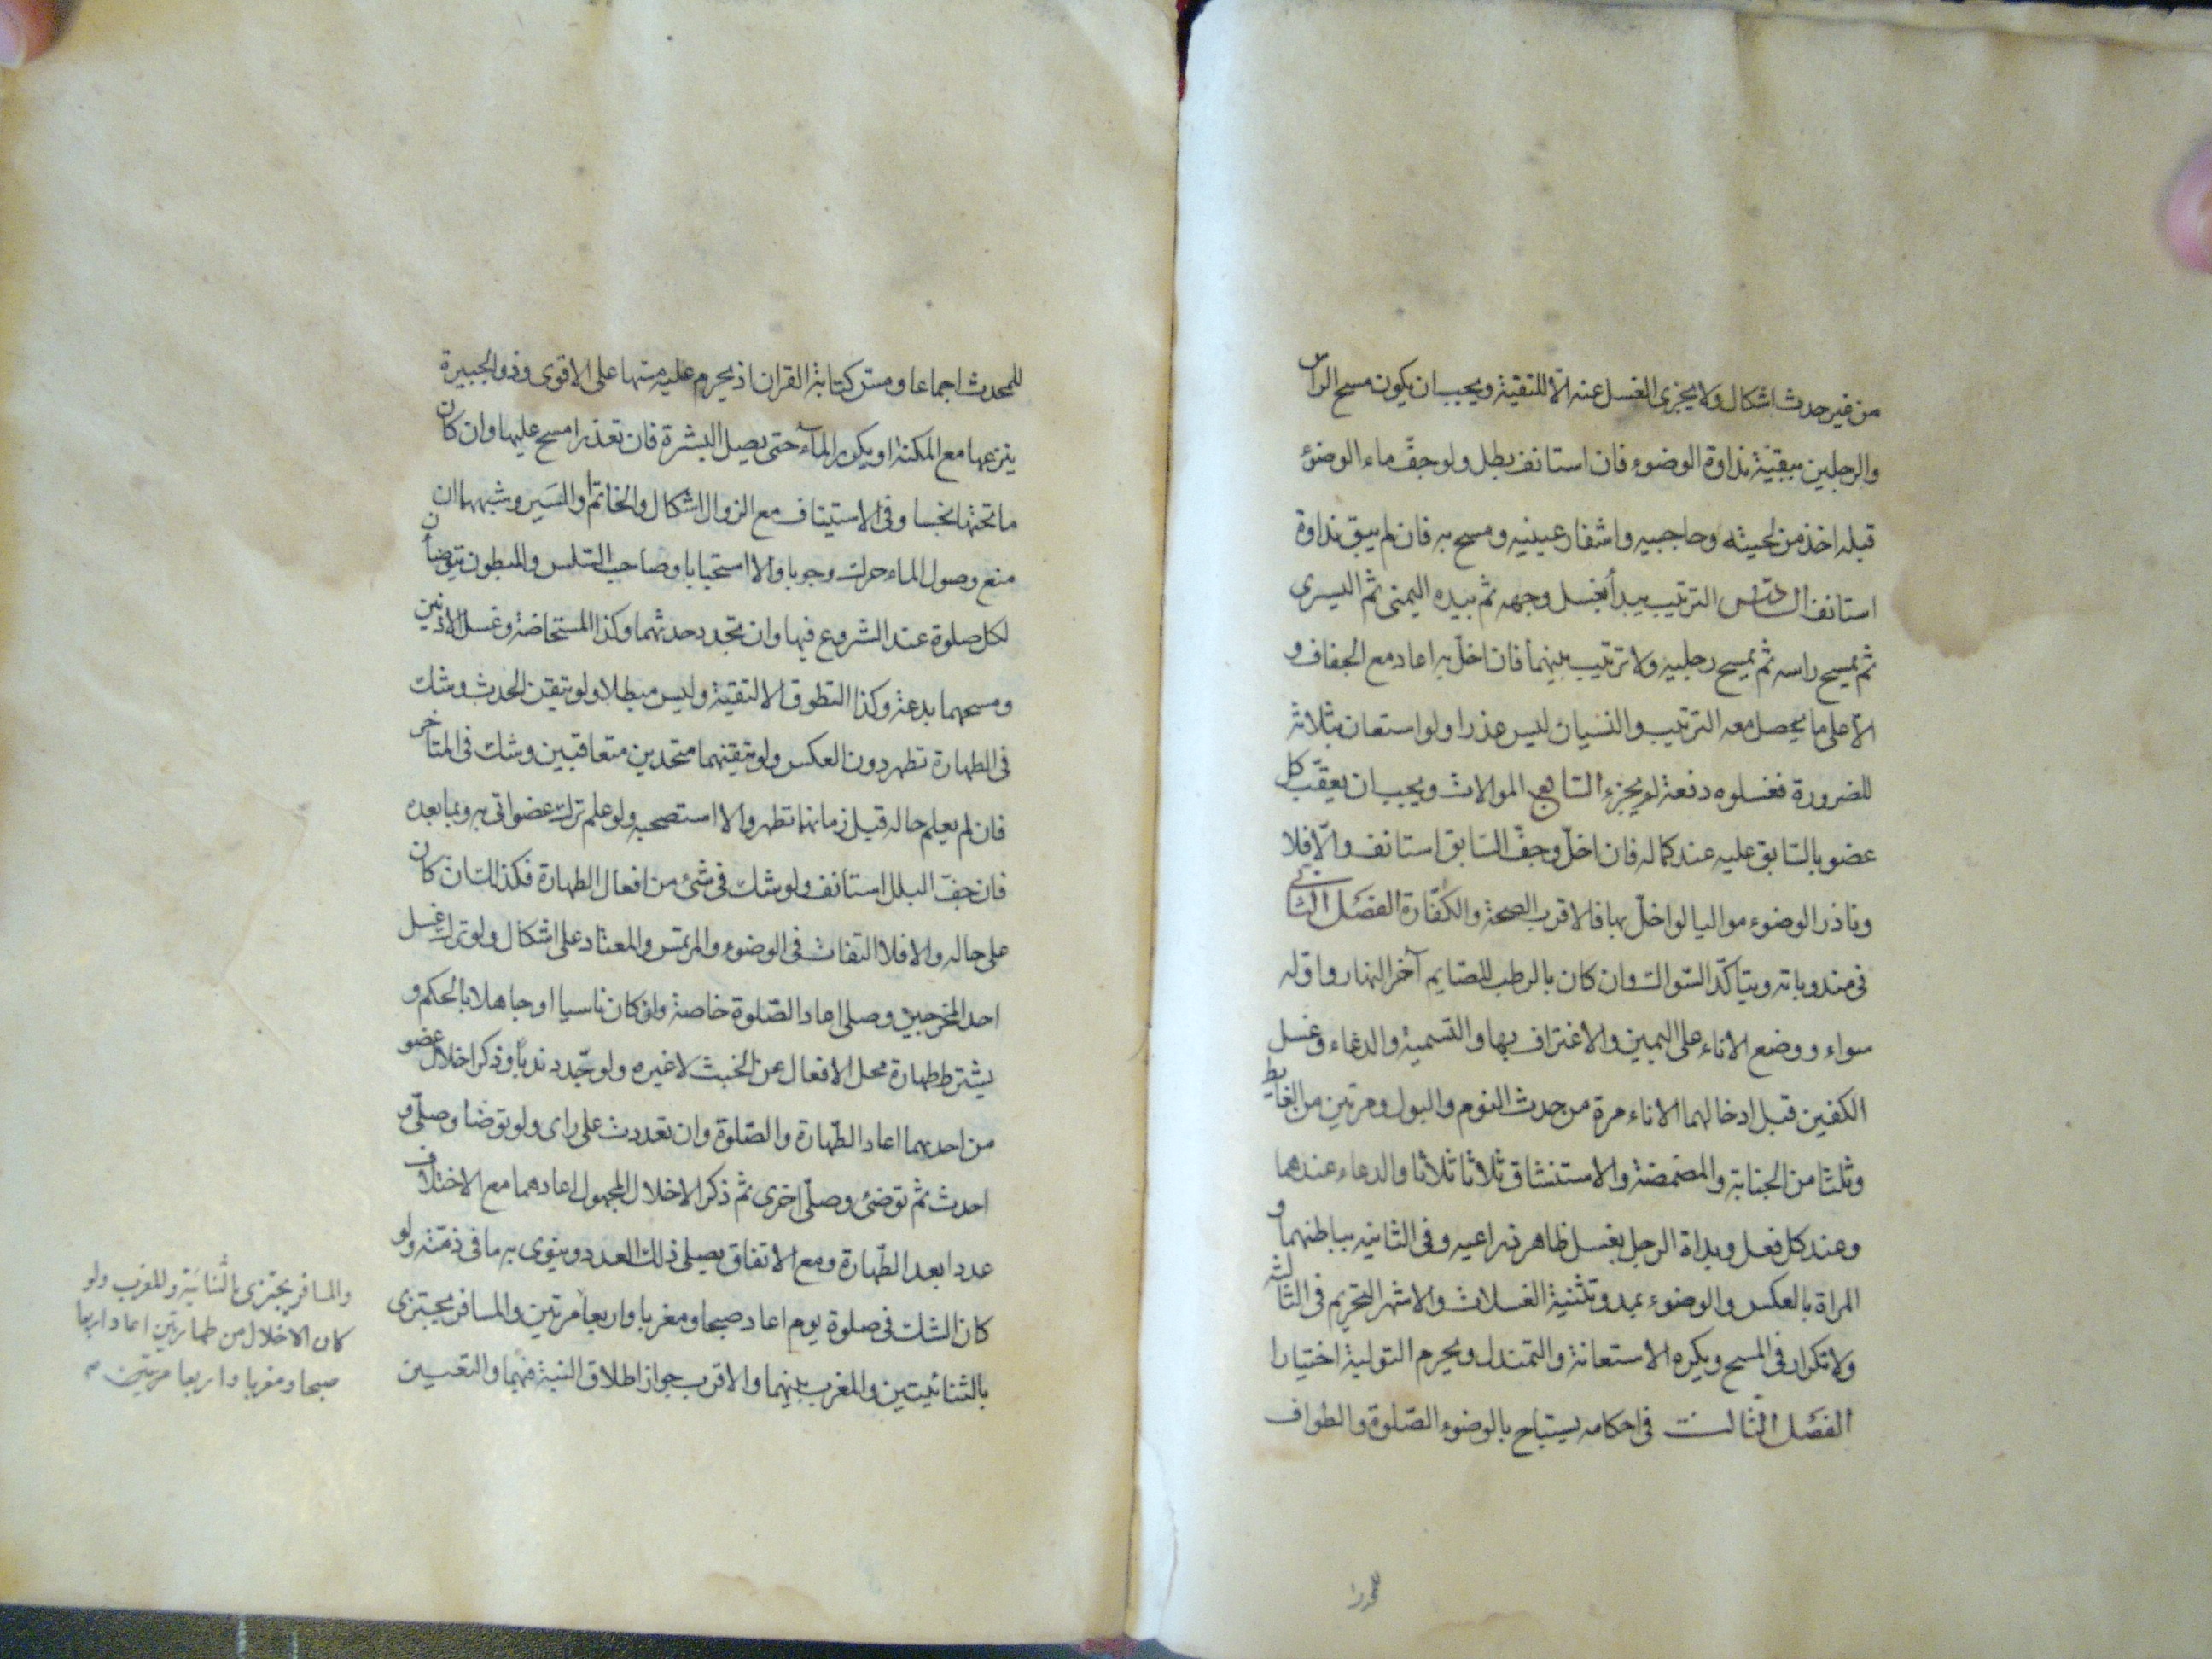 من غير حدث اشكال ولا يجزى الغسل عنه الا للتقية ويجب ان يكون مسح الراس
والرجلين ببقية نداوة الوضوء فان استانف بطل ولو جفّ ماء الوضوء
قبله اخذ من لحيته وحاجبيه واشفار عينيه ومسح به فان لم يبق نداوة
استانف السّادس الترتيب يبدأ بغسل وجهه ثم بيده اليمنى ثم اليسرى
ثم يمسح راسه ثم يمسح رجليه ولا ترتيب بينهما فان اخلّ به اعاد مع الجفاف و
الّا على ما يحصل معه الترتيب والنسيان ليس عذرا ولو استعان بثلاثة
للضرورة فغسلوه دفعة لم يجزء السّابع الموالات ويجب ان يعقّب كل
عضو بالسّابق عليه عند كماله فان اخلّ وجفّ السّابق استانف والّا فلا
وناذر الوضوء مواليا لو اخلّ بها فالاقرب الصحة والكفّارة الفصل الثانى
فى مندوباته ويتاكّد السّواك وان كان بالرطب للصّايم آخر النهار واوّله
سواء ووضع الاناء على اليمين والاغتراف بها والتّسمية والدعاء وغسل
الكفين قبل ادخالهما الاناء مرة من حدث النوم والبول ومرتين من الغايط
وثلثا من الجنابة والمضمضة والاستنشاق ثلاثا ثلاثا والدعاء عندهما
وعند كل فعل وبداة الرجل بغسل ظاهر ذراعيه وفى الثانيه بباطنهما و
المراة بالعكس والوضوء بمد وتثنية الغسلات والاشهر التحريم فى الثالثه
ولا تكرار فى المسح ويكره الاستعانة والتمندل ويحرم التولية اختيارا
الفصل الثّالث فى احكامه يستباح بالوضوء الصّلوة والطواف
للمحدث اجماعا ومسّ كتابة القران اذ يحرم عليه مسّها على الاقوى وذو الجبيرة
ينزعها مع المكنة او يكرر المآء حتى يصل البشرة فان تعذرا مسح عليها وان كان
ما تحتها نجسا وفى الاستيناف مع الزوال اشكال والخاتم او السّير وشبههما ان
منع وصول الماء حرك وجوبا والا استحبابا وصاحب السّلس والمبطون يتوضأن
لكل صلوة عند الشروع فيها وان تجدد حدثهما وكذا المستحاضة وغسل الاذنين
ومسحهما بدعة وكذا التطوق الا لتقية وليس مبطلا ولو تيقن الحدث وشك
فى الطهارة تطهر دون العكس ولو تيقنهما متحدين متعاقبين وشك فى المتاخر
فان لم يعلم حاله قبل زمانهما تطهر والا استصحبه ولو علم ترك عضو اتى به وبما بعده
فان جفّ البلل استانف ولو شك فى شئ من افعال الطهارة فكذلك ان كان
على حاله والا فلا التفات فى الوضوء والمرتمس والمعتاد على اشكال ولو ترك غسل
احد المخرجين وصلى اعاد الصّلوة خاصة وان كان ناسيا او جاهلا بالحكم و
يشترط طهارة محل الافعال عن الخبث لا غيره ولو جدّد ندباً وذكر اخلال عضو
من احدهما اعاد الطّهارة والصّلوة وان تعددت على راى ولو توضا وصلّى و
احدث ثم توضئ وصلّى اخرى ثم ذكر الاخلال المجهول اعادهما مع الاختلاف
عددا بعد الطّهارة ومع الاتفاق يصلى ذلك العدد وينوى به ما فى ذمّته ولو
كان الشك فى صلوة يوم اعاد صبحا ومغربا واربعا مرتين والمسافر يجتزى
بالثنائيتين والمغرب بينهما والاقرب جواز اطلاق النية فيهما والتعيين
والمسافر يجتزى بالثنائية والمغرب ولو
كان الاخلال من طهارتين اعاد اربعا
صبحا ومغربا واربعا مرتين